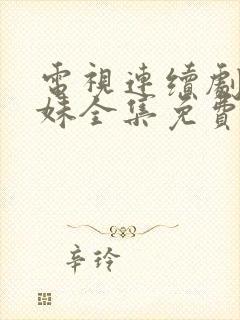 電視連續劇
妹全集免費
辛玲